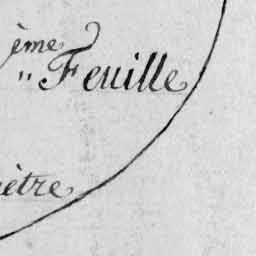 ème
" Feuille
ètre